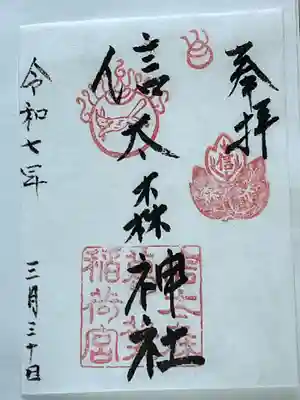 奉拝
信太森神社
信太森
葛葉
稲荷宮
令和七年
三月三十日